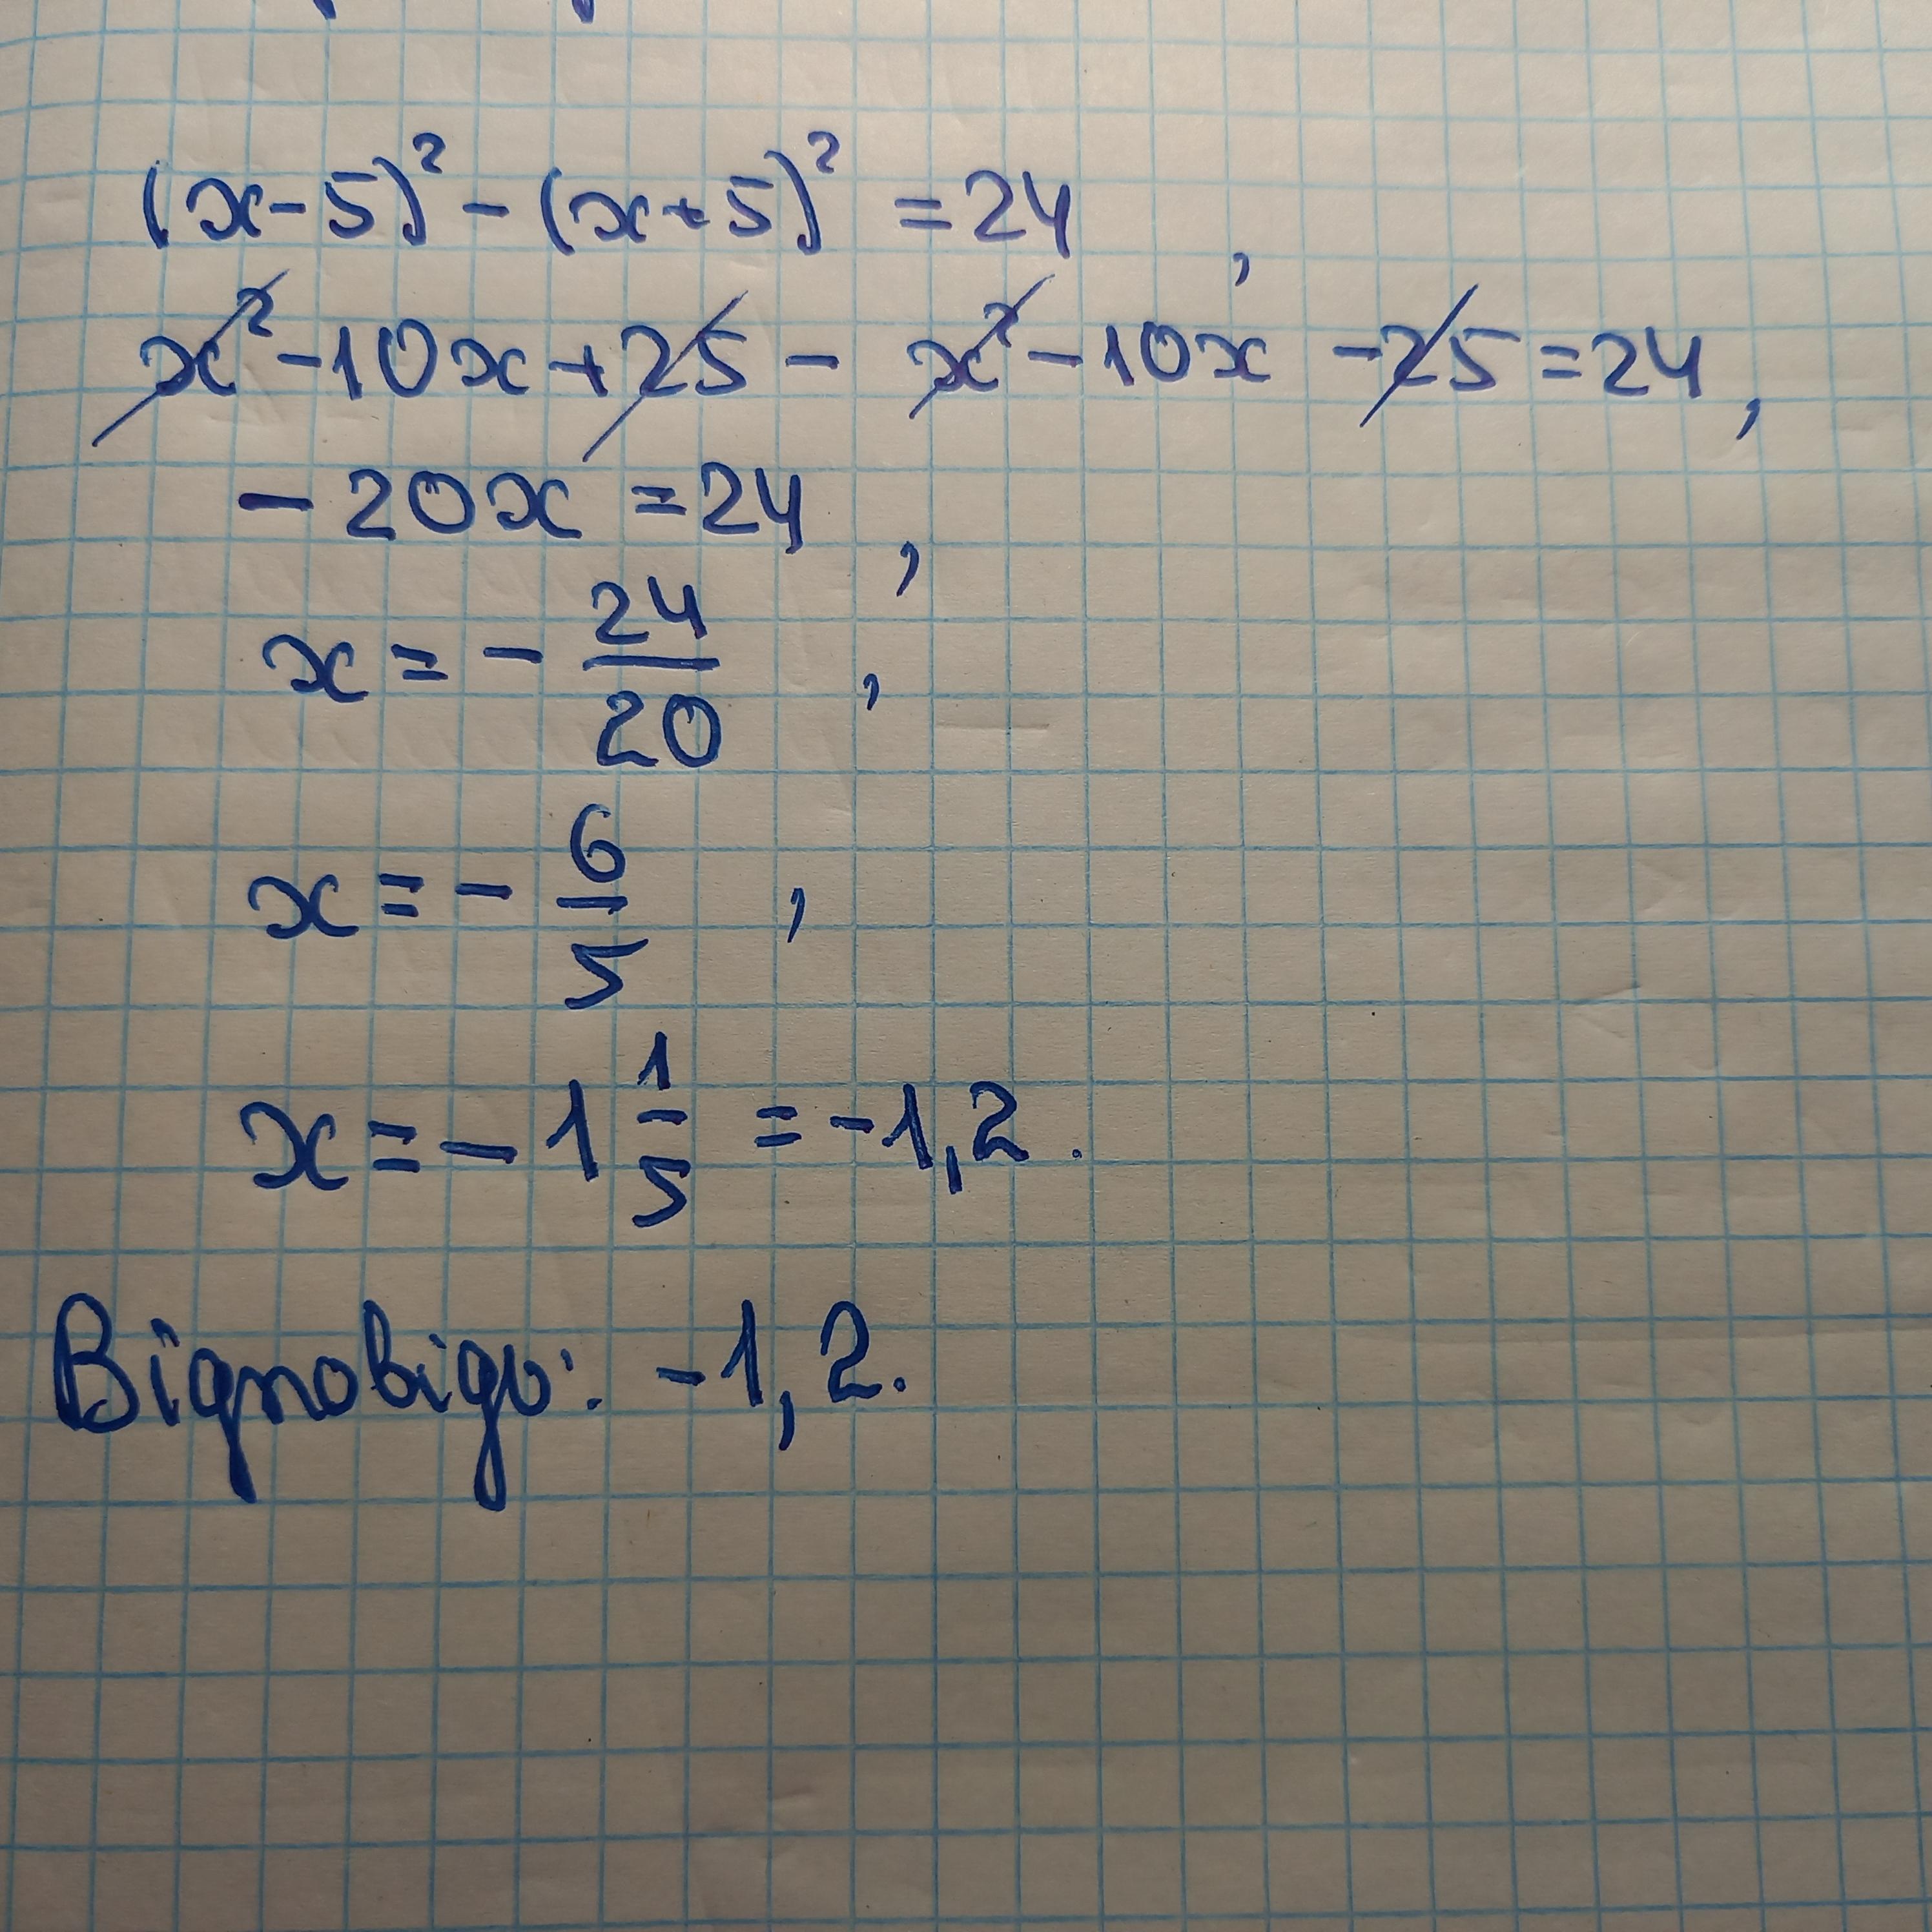 (x-5)² - (x+5)² = 24,
x² - 10x + 25 - x² - 10x - 25 = 24,
- 20x = 24,
x = - 24/20,
x = - 6/5,
x = - 1 1/5 = -1,2.
Відповідь: -1,2.